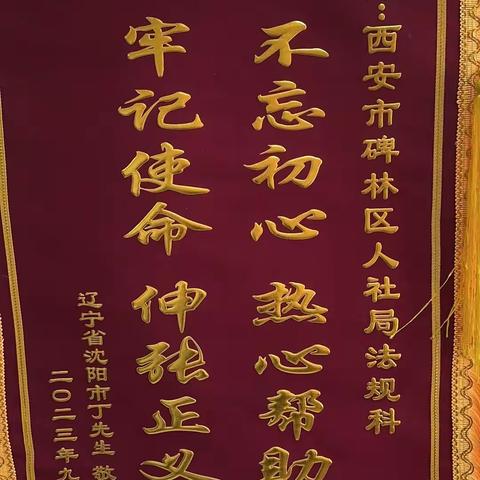 :西安市碑林区人社局法规科
不忘初心 热心帮助
牢记使命 伸张正义
辽宁省沈阳市丁先生 敬
二〇二三年九